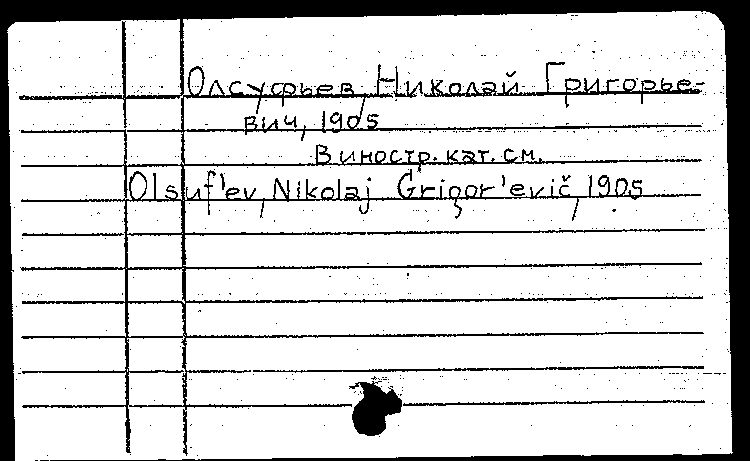 Олсуфьев, Николай Григорье-
вич, 1905
В иностр. кат. см.
Olsuf'ev, Nikolaj Grigor'evič, 1905